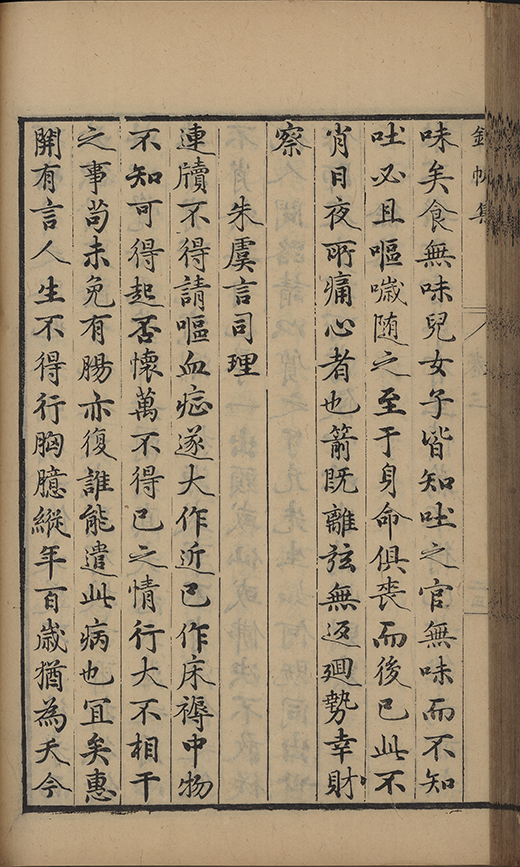 味矣食無味兒女子皆知吐之官無味而不知
吐必且嘔噦随之至于身命俱喪而後已此不
肖日夜所痛心者也箭旣離弦無返廻勢幸財
察
朱虞言司理
連牘不得請嘔血症遂大作近已作床褥中物
不知可得起否懷萬不得已之情行大不相干
之事苟未免有腸亦復誰能遣此病也冝矣惠
開有言人生不得行胸臆縱年百歲猶為夭今